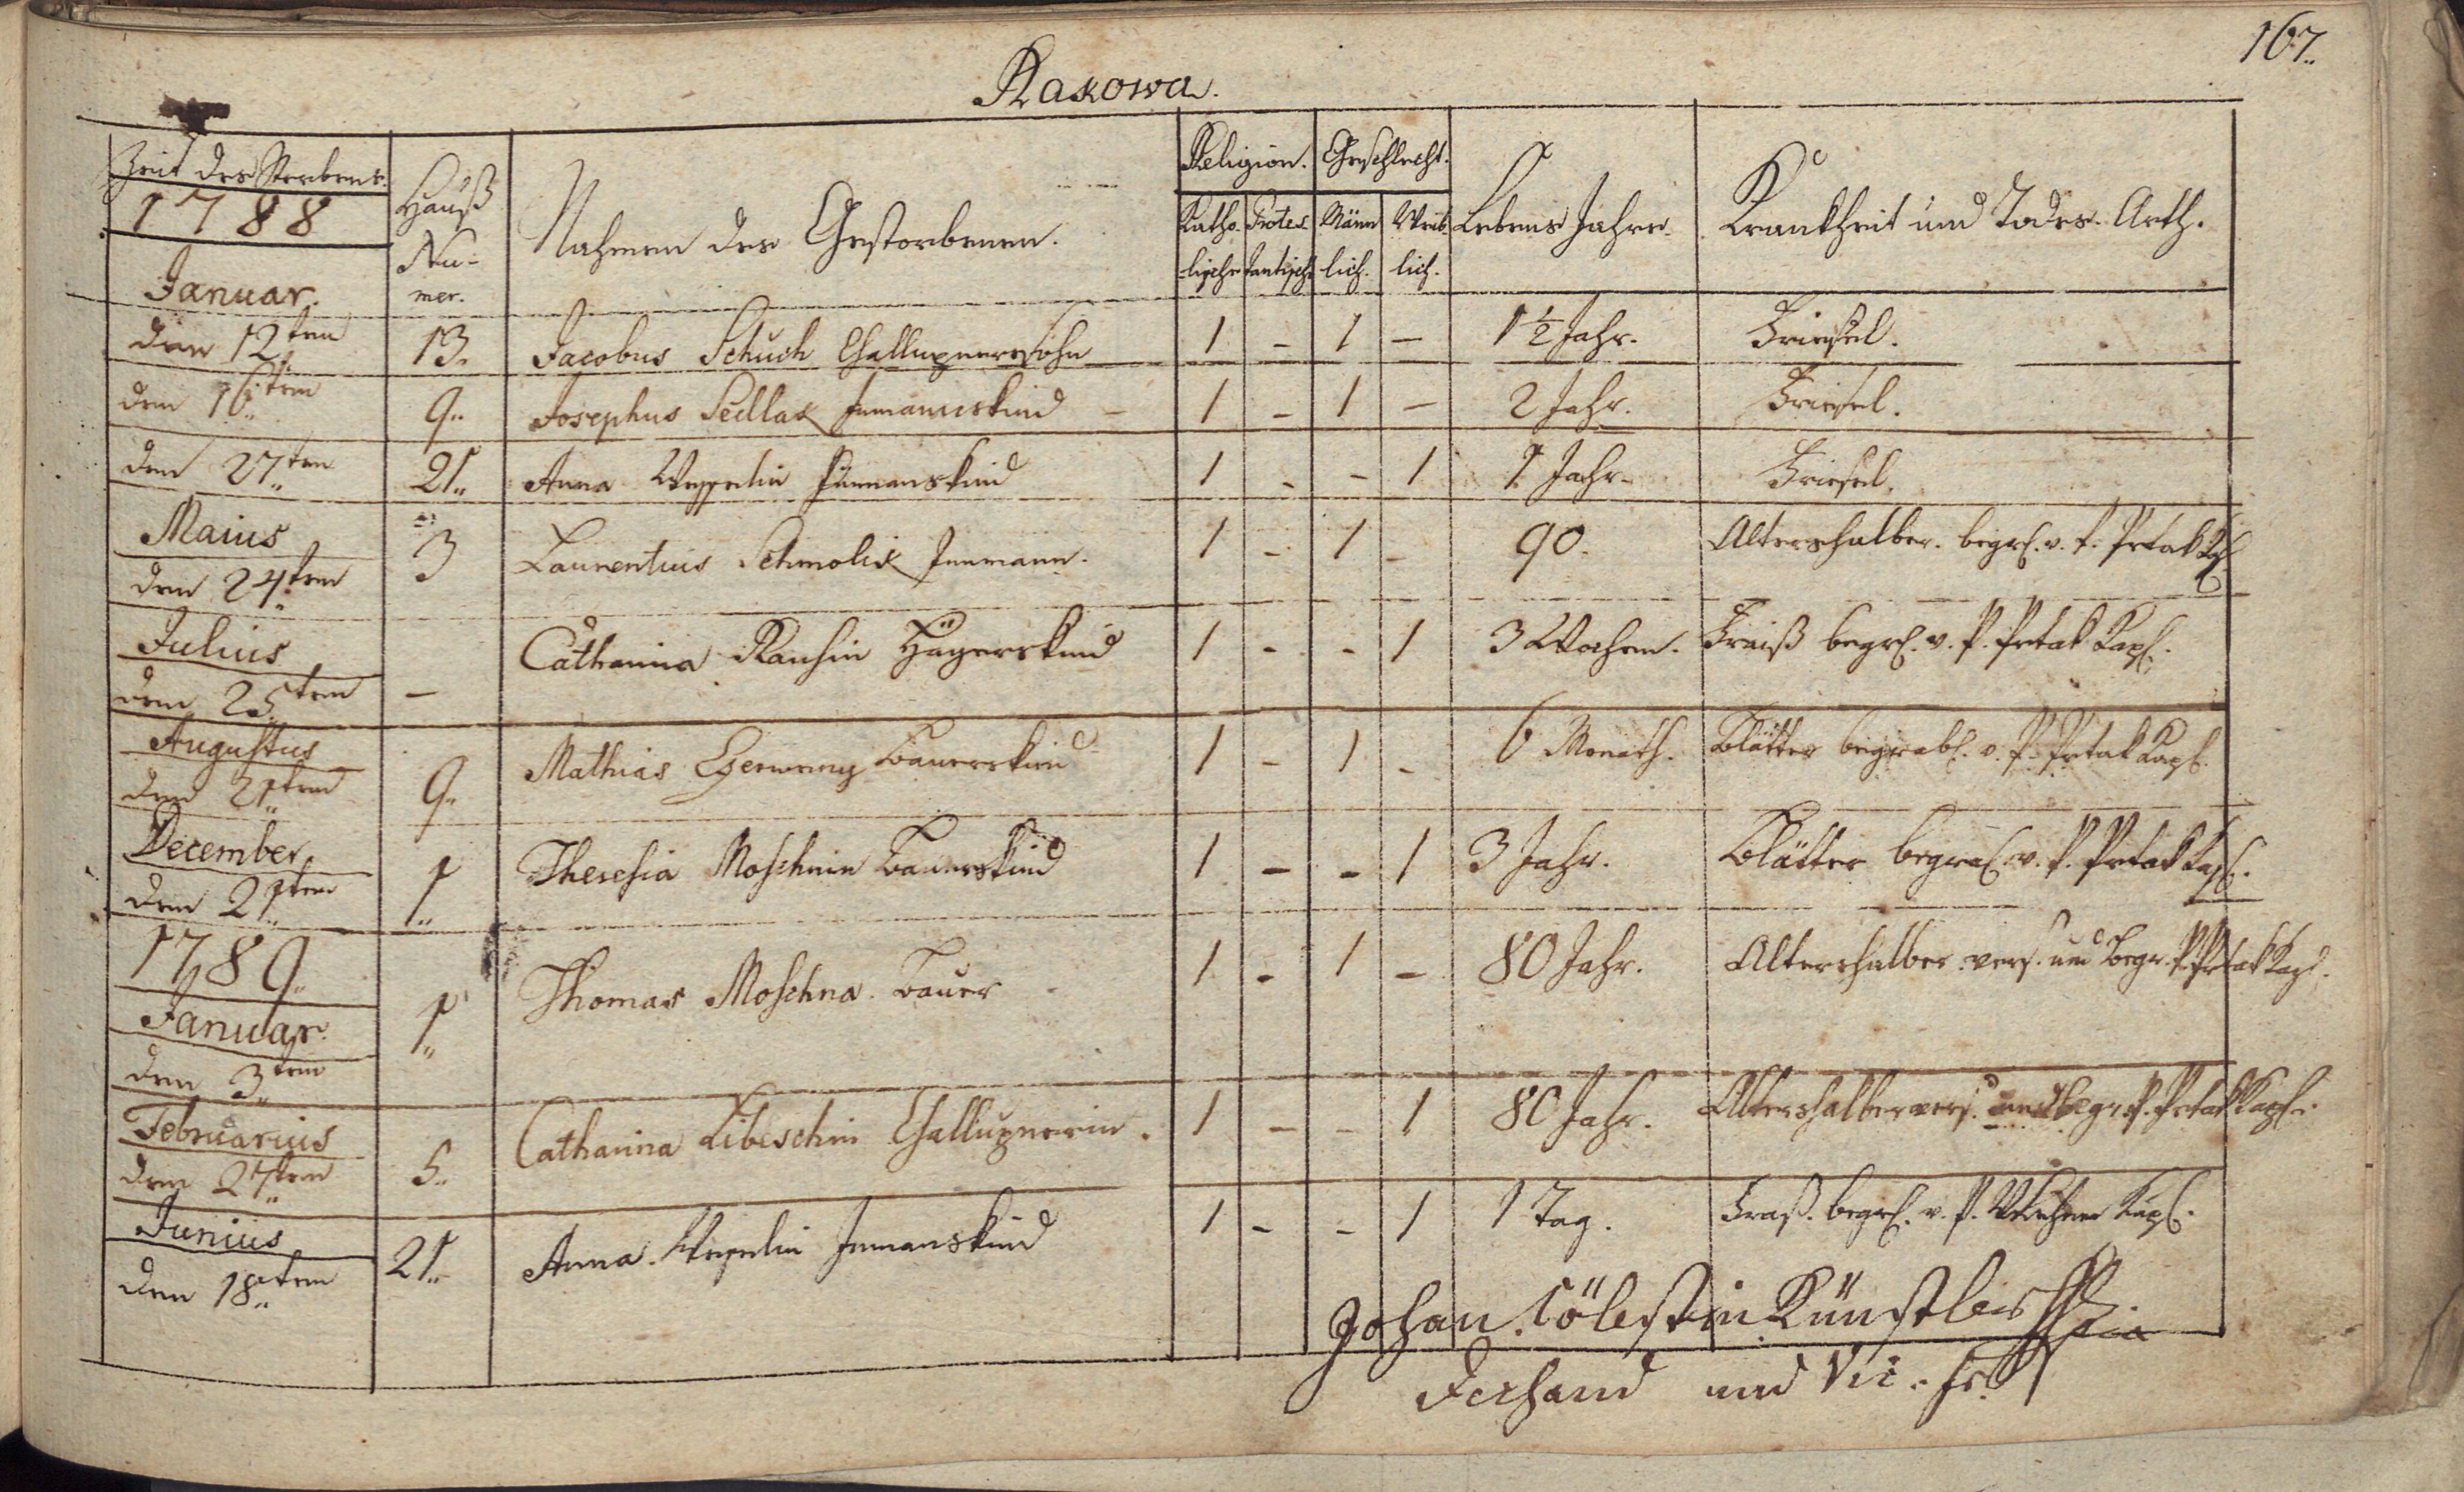 167.
Rakowa.
Zeit des Sterbens.
1788
Hauß
Nu-
mer.
Nahmen des Gestorbenen.
Religion.
Katho-
lische
Protes
tantisch
Geschlecht.
Män̄
lich.
Weib
lich.
Lebens Jahre.
Krankheit und Todes-Arth.
Januar.
den 12ten 13. Jacobus Schuch Challupnerssohn 1 - 1 - 1 1/2 Jahr. Friesel.
den 16ten 9. Josephus Sedlak Inmanuskind - 1 - 1 - 2 Jahr. Friesel.
den 27ten 21. Anna Inmanskind 1 - - 1 1 Jahr. Friesel.
Maius
den 24ten 3 Laurentius Schmolik Inmann. 1 - 1 - 90. Altershalber. begrh. v. P. Prtak
Julius
den 25ten - Catharina Hägerskind 1 - - 1 3 Wochen. Fraiß begrh. v. P. Prtak Kapl.
Augustus
den 21ten 9. Mathias Bauerskind 1 - 1 - 6 Monath. Blatter begrab. v. P. Prtak Kapl.
December
den 21ten 1 Theresia Moschnin Bauerskind 1 - - 1 3 Jahr. Blatter begrab. v. P. Prtak Kapl.
1789.
Januar.
den 3ten 1 Thomas Moschna. Bauer 1 - 1 - 80 Jahr. Altershalber vers. und Begr. P. Prtak Kapl.
Februarius
den 27ten 5. Catharina Libeschin Challupnerin. 1 - - 1 80 Jahr. Altershalber vers. und begr. P. Prtak Kapl.
Junius
den 18ten 21. Anna Inmanskind 1 - - 1 1 Tag. Fraß. begrh. v. P. Kapl.
Johan. Cölestin Künstler
Dechand und Vic: